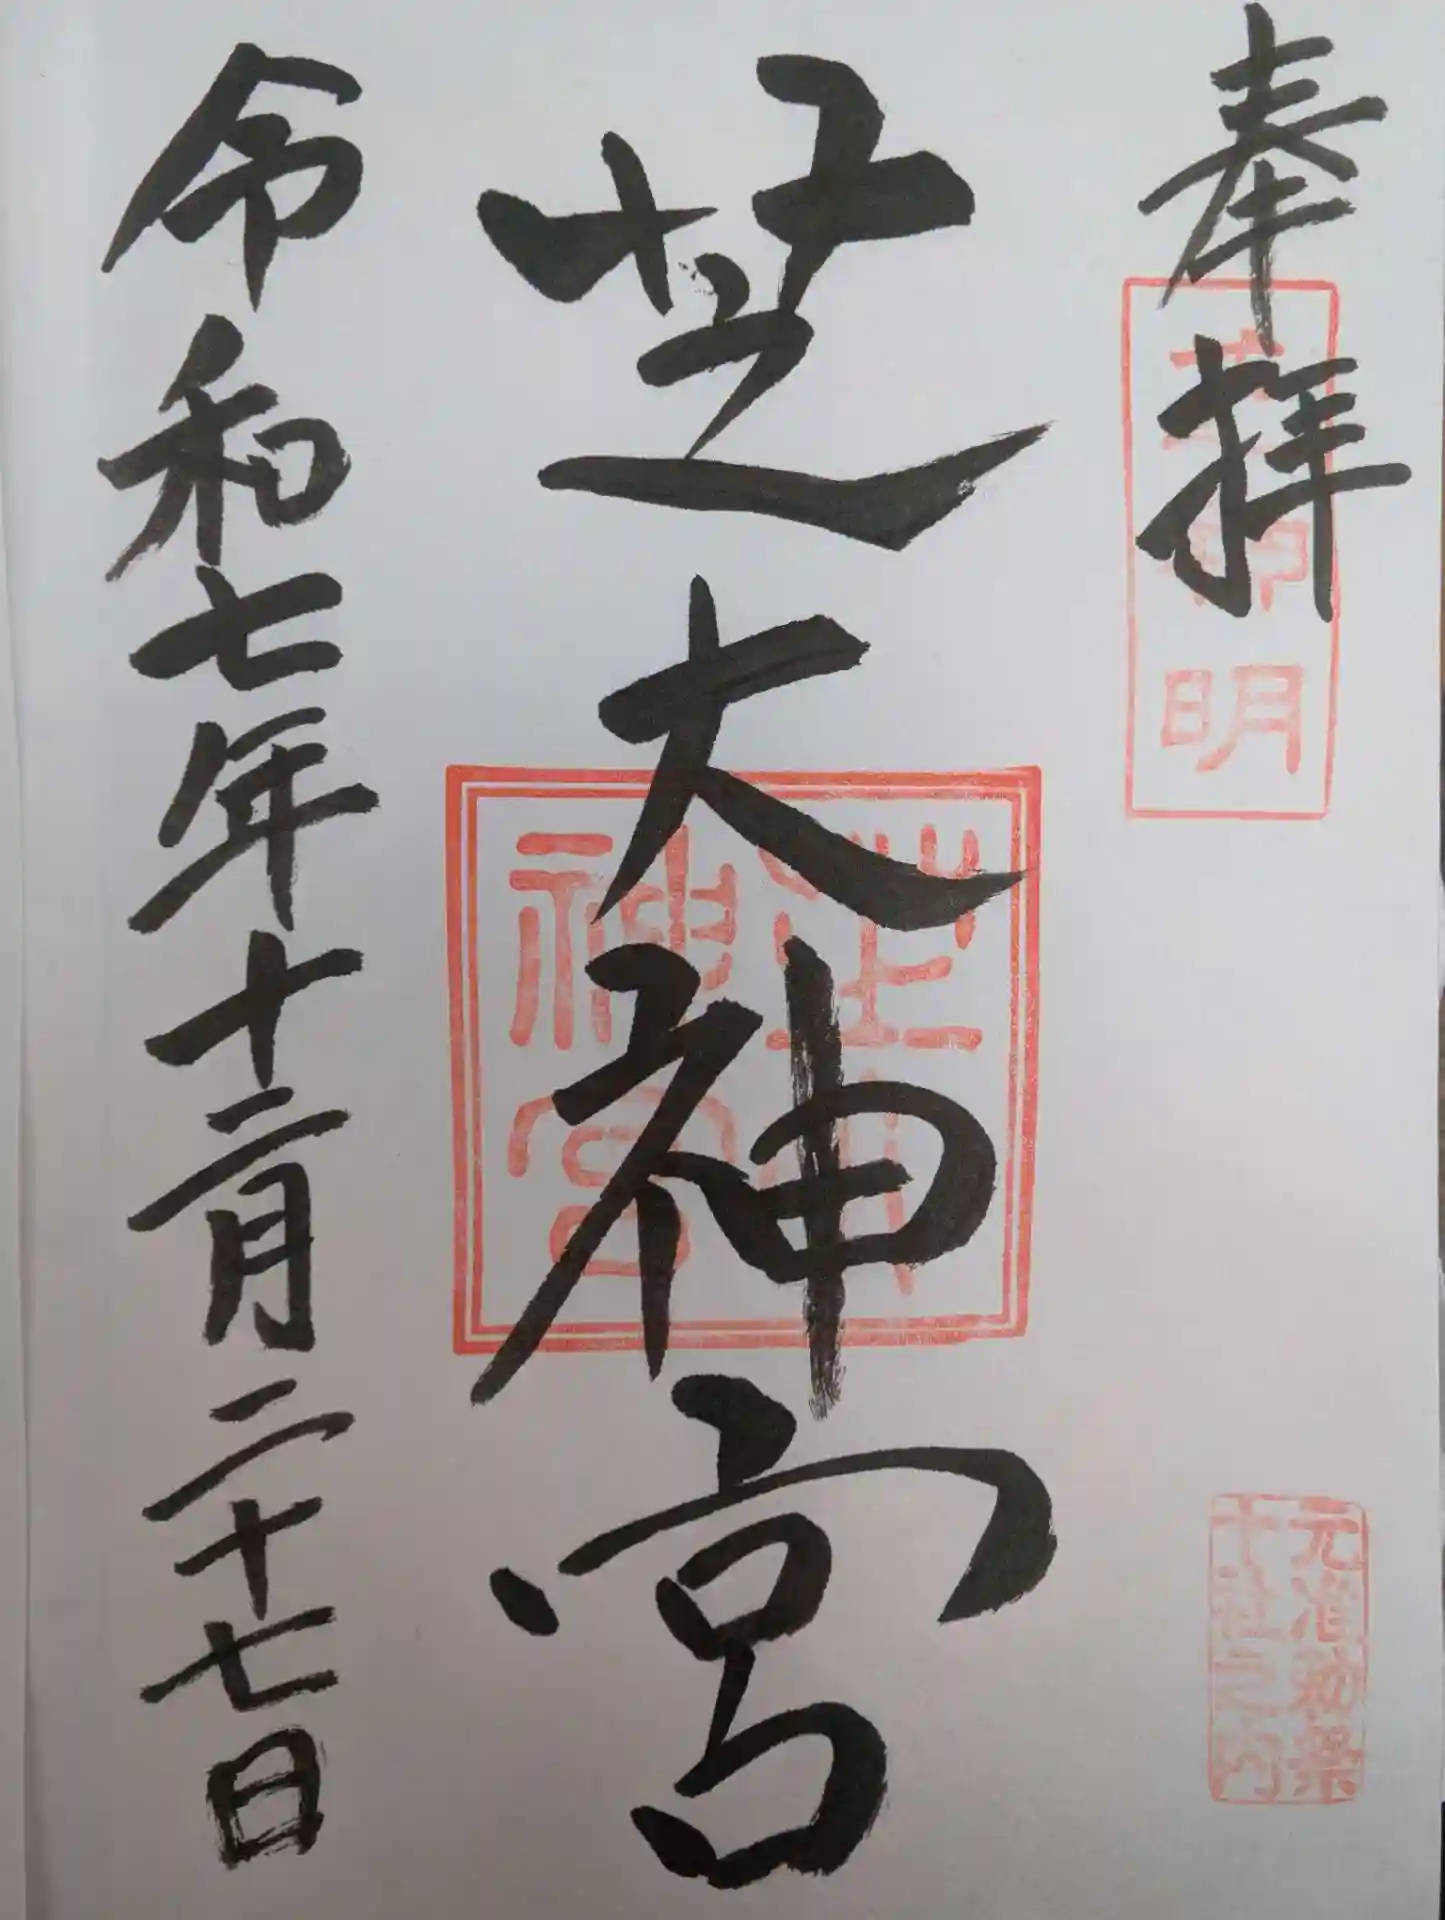 奉拝
明
元准勅祭
十社之内
芝大神宮
芝大
神宮
令和七年十二月二十七日